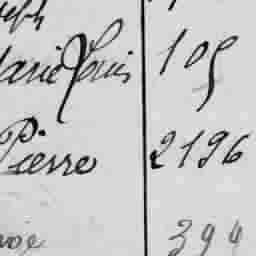 Marie Louis 109
Pierre 2196
394